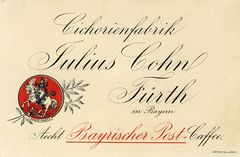 Cichorienfabrik
Julius Cohn
Fürth
in Bayern
Aecht Bayrischer Post-Caffee.